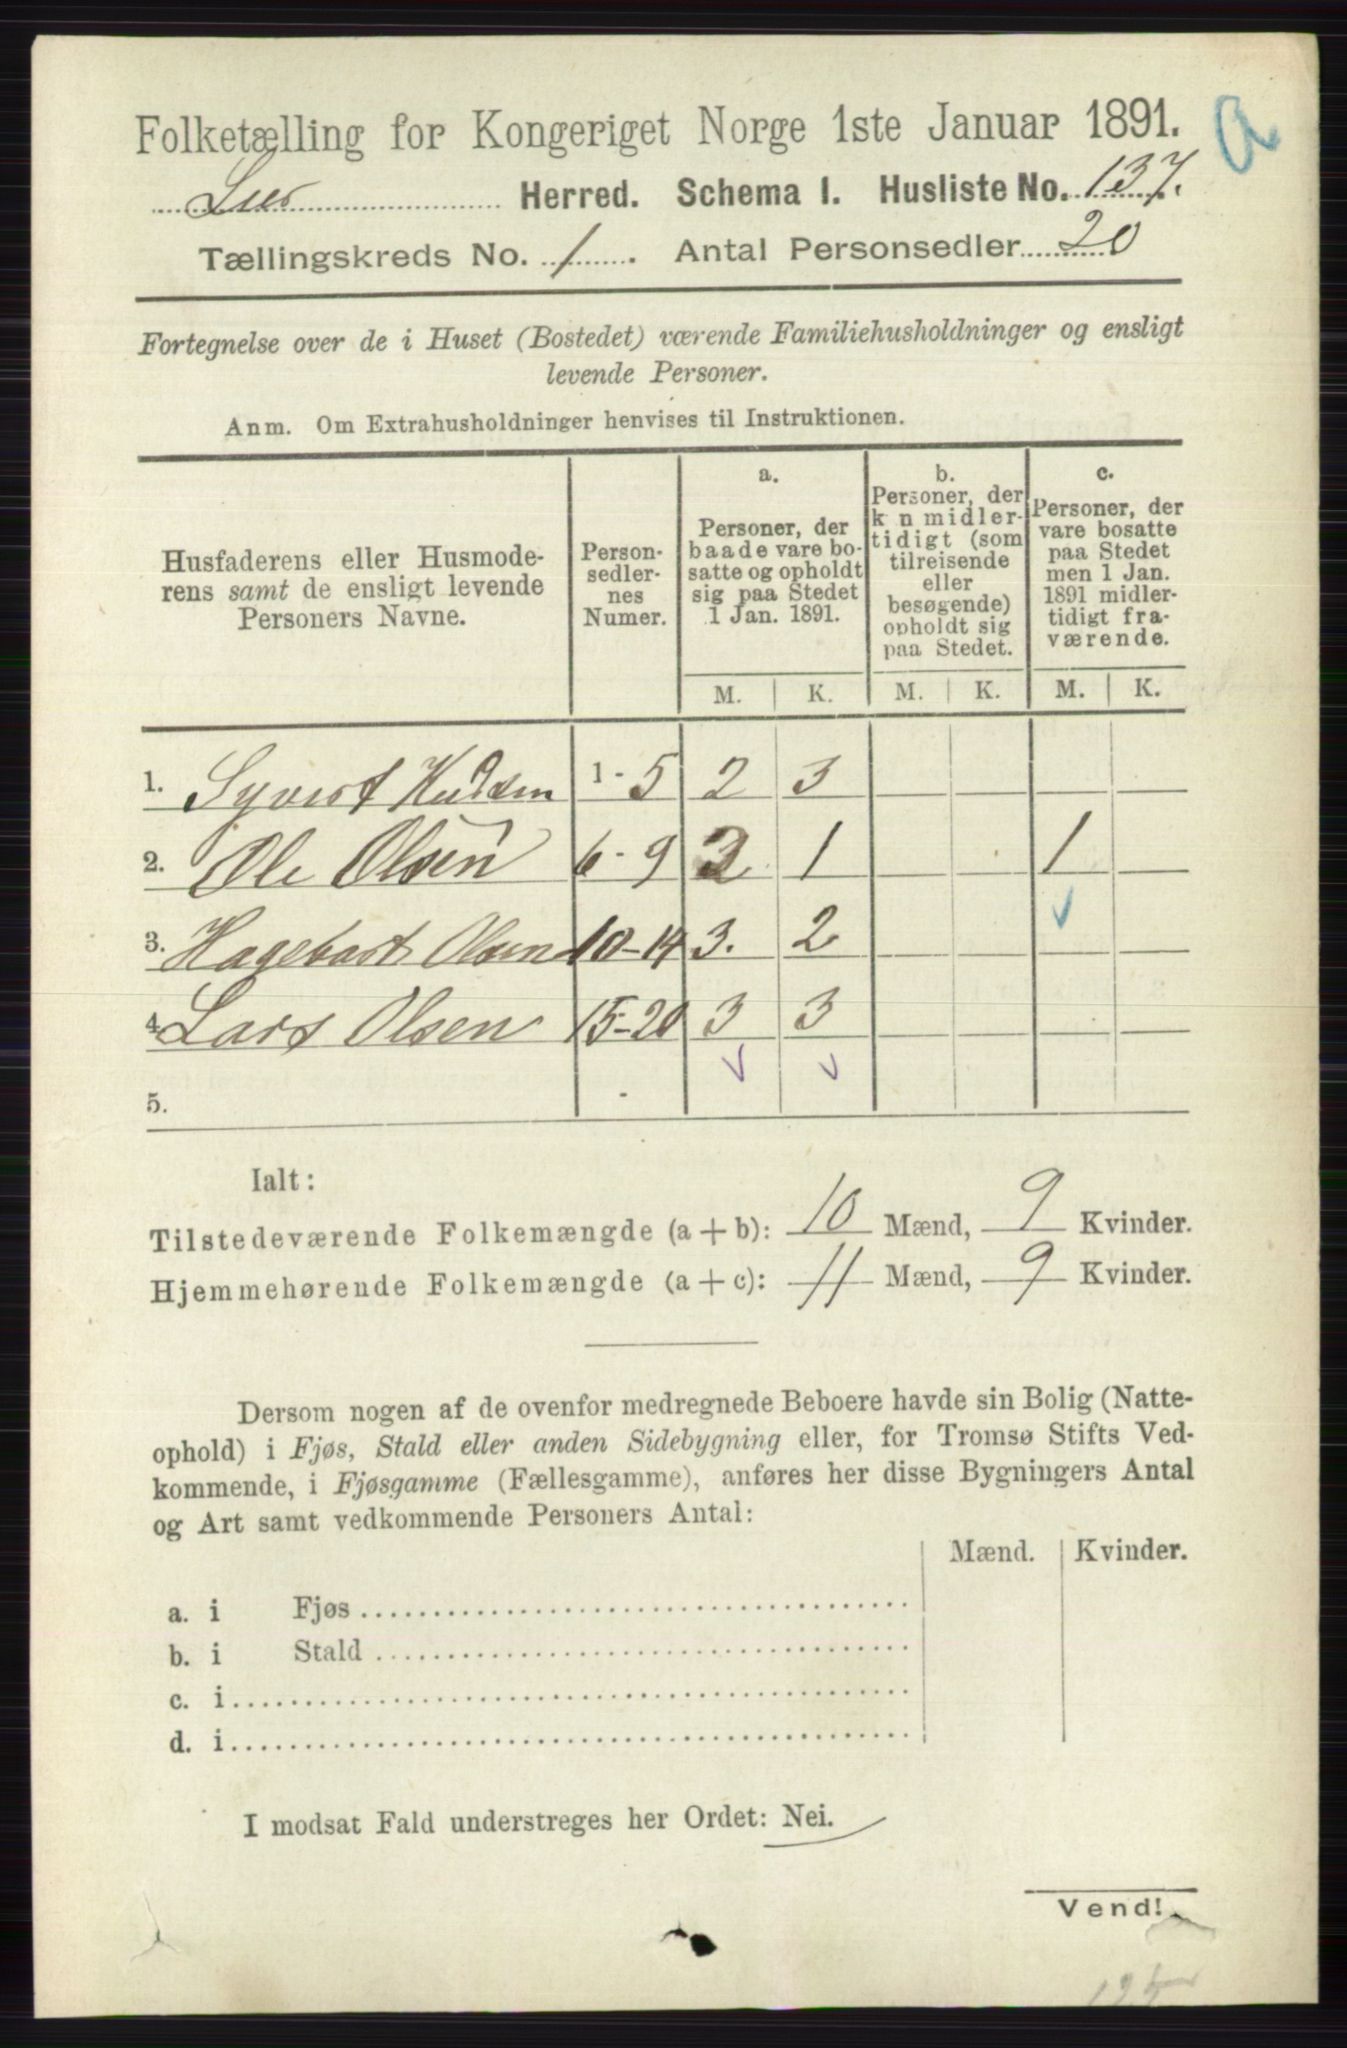 Folketælling for Kongeriget Norge 1ste Januar 1891.
a
Lier Herred. Schema I. Husliste No. 137.
Tællingskreds No. 1. Antal Personsedler 20
Fortegnelse over de i Huset (Bostedet) værende Familiehusholdninger og ensligt
levende Personer.
Anm. Om Extrahusholdninger henvises til Instruktionen.
Husfaderens eller Husmode-
rens samt de ensligt levende
Personers Navne.
Person-
sedler-
nes
Numer.
a.
Personer, der
baade vare bo-
satte og opholdt
sig paa Stedet
1 Jan. 1891.
b.
Personer, der
kun midler-
tidigt (som
tilreisende
eller
besøgende)
opholdt sig
paa Stedet.
c.
Personer, der
vare bosatte
paa Stedet
men 1 Jan.
1891 midler-
tidigt fra-
værende.
M. K. M. K. M. K.
1. Syvert Kudsen 1-5 2 3
2. Ole Olsen 6-9 2 1 1
3. Hagebart Olsen 10-14 3. 2
4 Lars Olsen 15-20 3 3
5.
Ialt:
Tilstedeværende Folkemængde (a + b): 10 Mænd, 9 Kvinder.
Hjemmehørende Folkemængde (a + c): 11 Mænd, 9 Kvinder.
Dersom nogen af de ovenfor medregnede Beboere havde sin Bolig (Natte-
ophold) i Fjøs, Stald eller anden Sidebygning eller, for Tromsø Stifts Ved-
kommende, i Fjøsgamme (Fællesgamme), anføres her disse Bygningers Antal
og Art samt vedkommende Personers Antal:
Mænd. Kvinder.
a. i Fjøs
b. i Stald
c. i
d. i
I modsat Fald understreges her Ordet: Nei.
Vend!